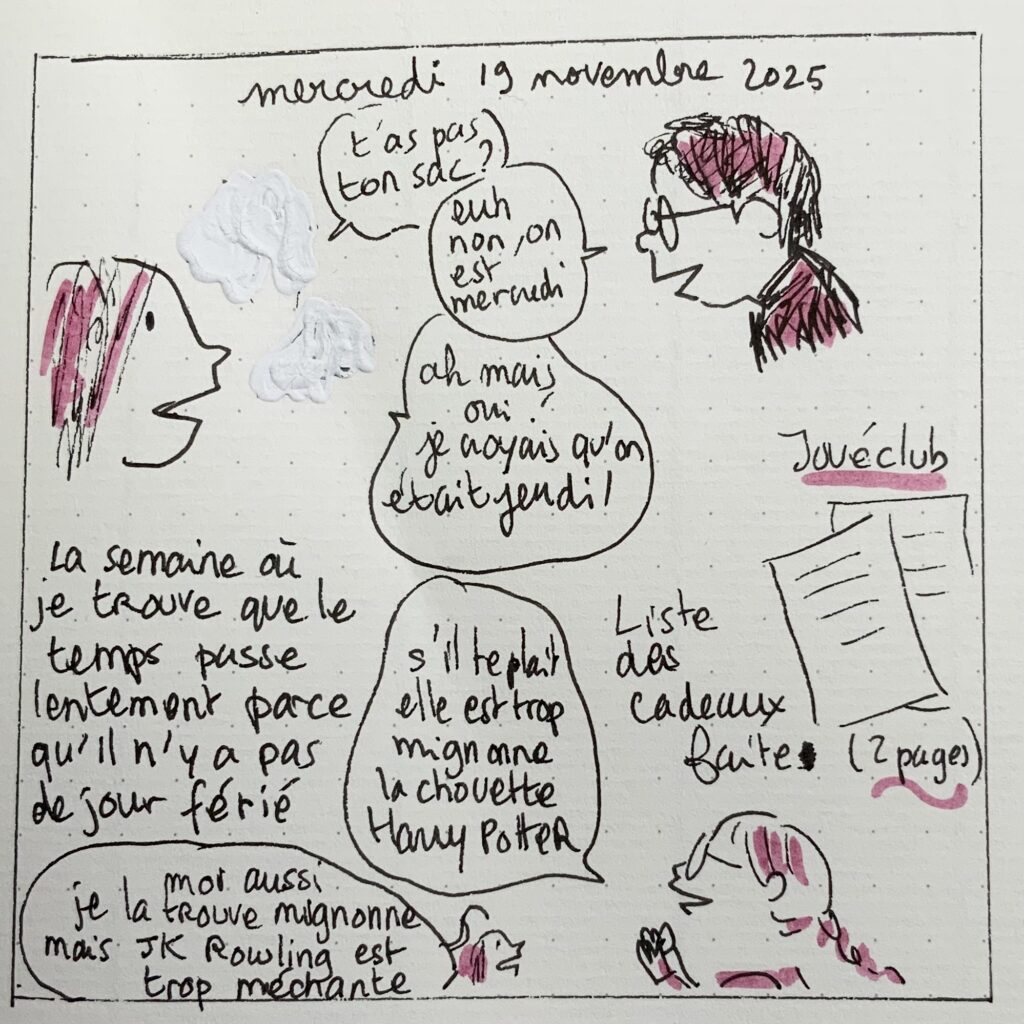 mercredi 19 novembre 2025
t'as pas
ton sac?
euh
non, on
est
mercredi
ah mais
oui!
je croyais qu'on
était jeudi!
La semaine où
je trouve que le
temps passe
lentement parce
qu'il n'y a pas
de jour férié
Jouéclub
Liste
des
cadeaux
faite (2 pages)
s'il te plait
elle est trop
mignonne
la chouette
Harry Potter
moi aussi
je la trouve mignonne
mais JK Rowling est
trop méchante